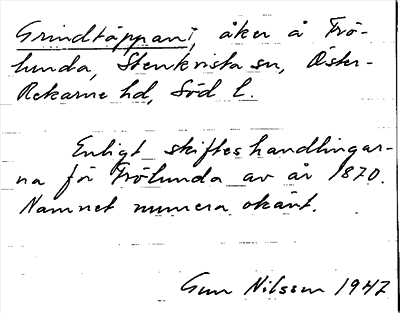 Grindtäppan, åker å Frö-
lunda, Stenkvista sn, Öster-
Rekarne hd, Söd l.
Enligt skifteshandlingar-
na för Frölunda av år 1870.
Namnet numera okänt.
Gun Nilsson 1947